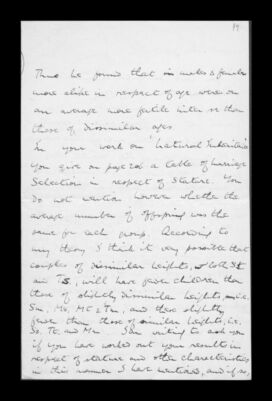 19
Thus he found that in males & females
more alike in respect of age were on
an average more fertile inter se than
those of dissimilar ages
In your work on 'Natural Inheritance'
you give on page 206 a table of marriage
Selection in respect of Stature. You
do not mention however whether the
average number of offspring was the
same for each group. According to
my theory I think it very possible that
couples of dissimilar heights,
and will have fewer children than
those of slightly dissimilar heights,
and these slightly
fewer than those of similar heights, i.e.
Am writing to ask you
if you have worked out your results in
respect of stature and other characteristics
in this manner I have mentioned, and if so,